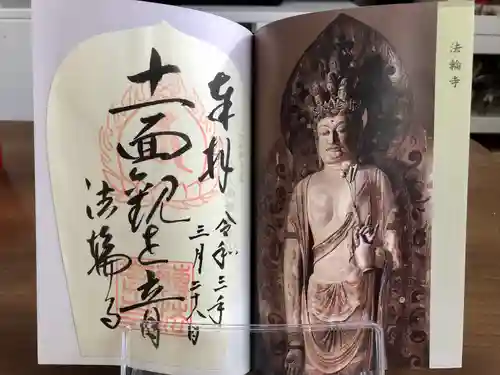 奉拝
令和三年
三月二十八日
十一面観世音
法輪寺
法輪寺